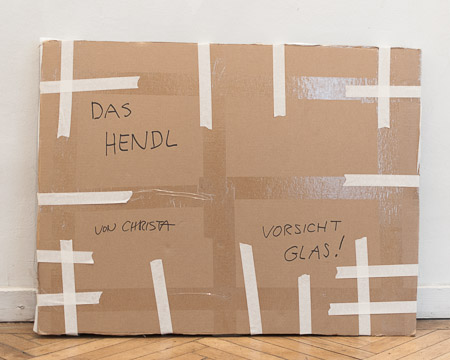 DAS
HENDL
VON CHRISTA
VORSICHT
GLAS!